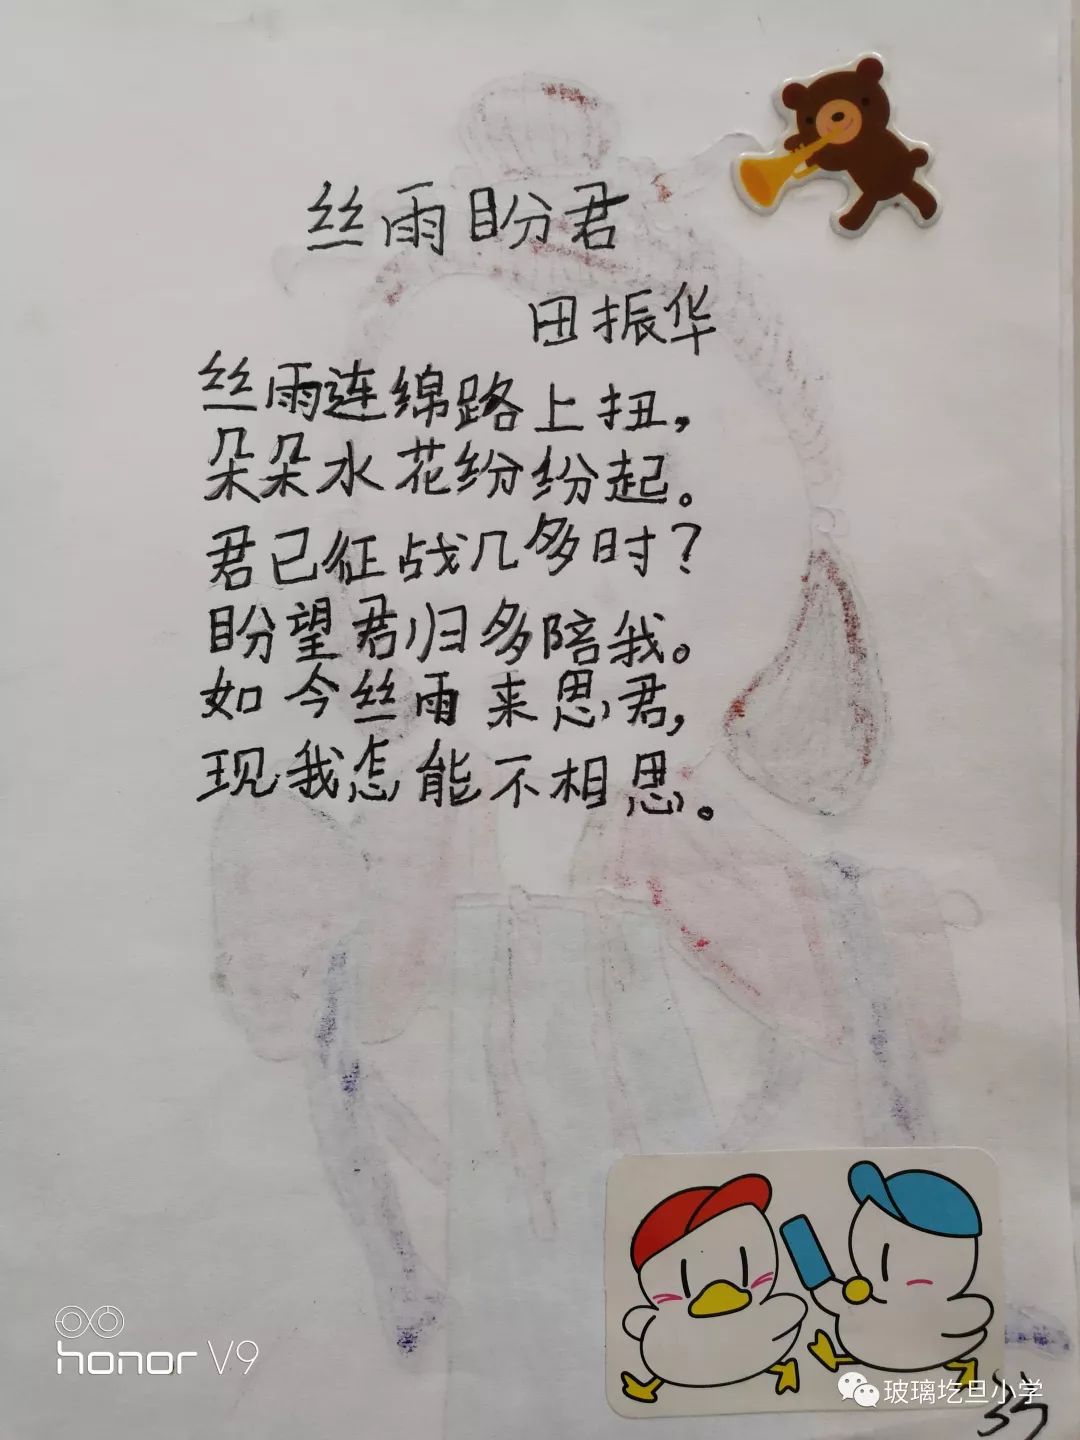 丝雨盼君
田振华
丝雨连绵路上扭，
朵朵水花纷纷起。
君已征战几多时？
盼望君归多陪我。
如今丝雨来思君，
现我怎能不相思。
honor V9
玻璃圪旦小学